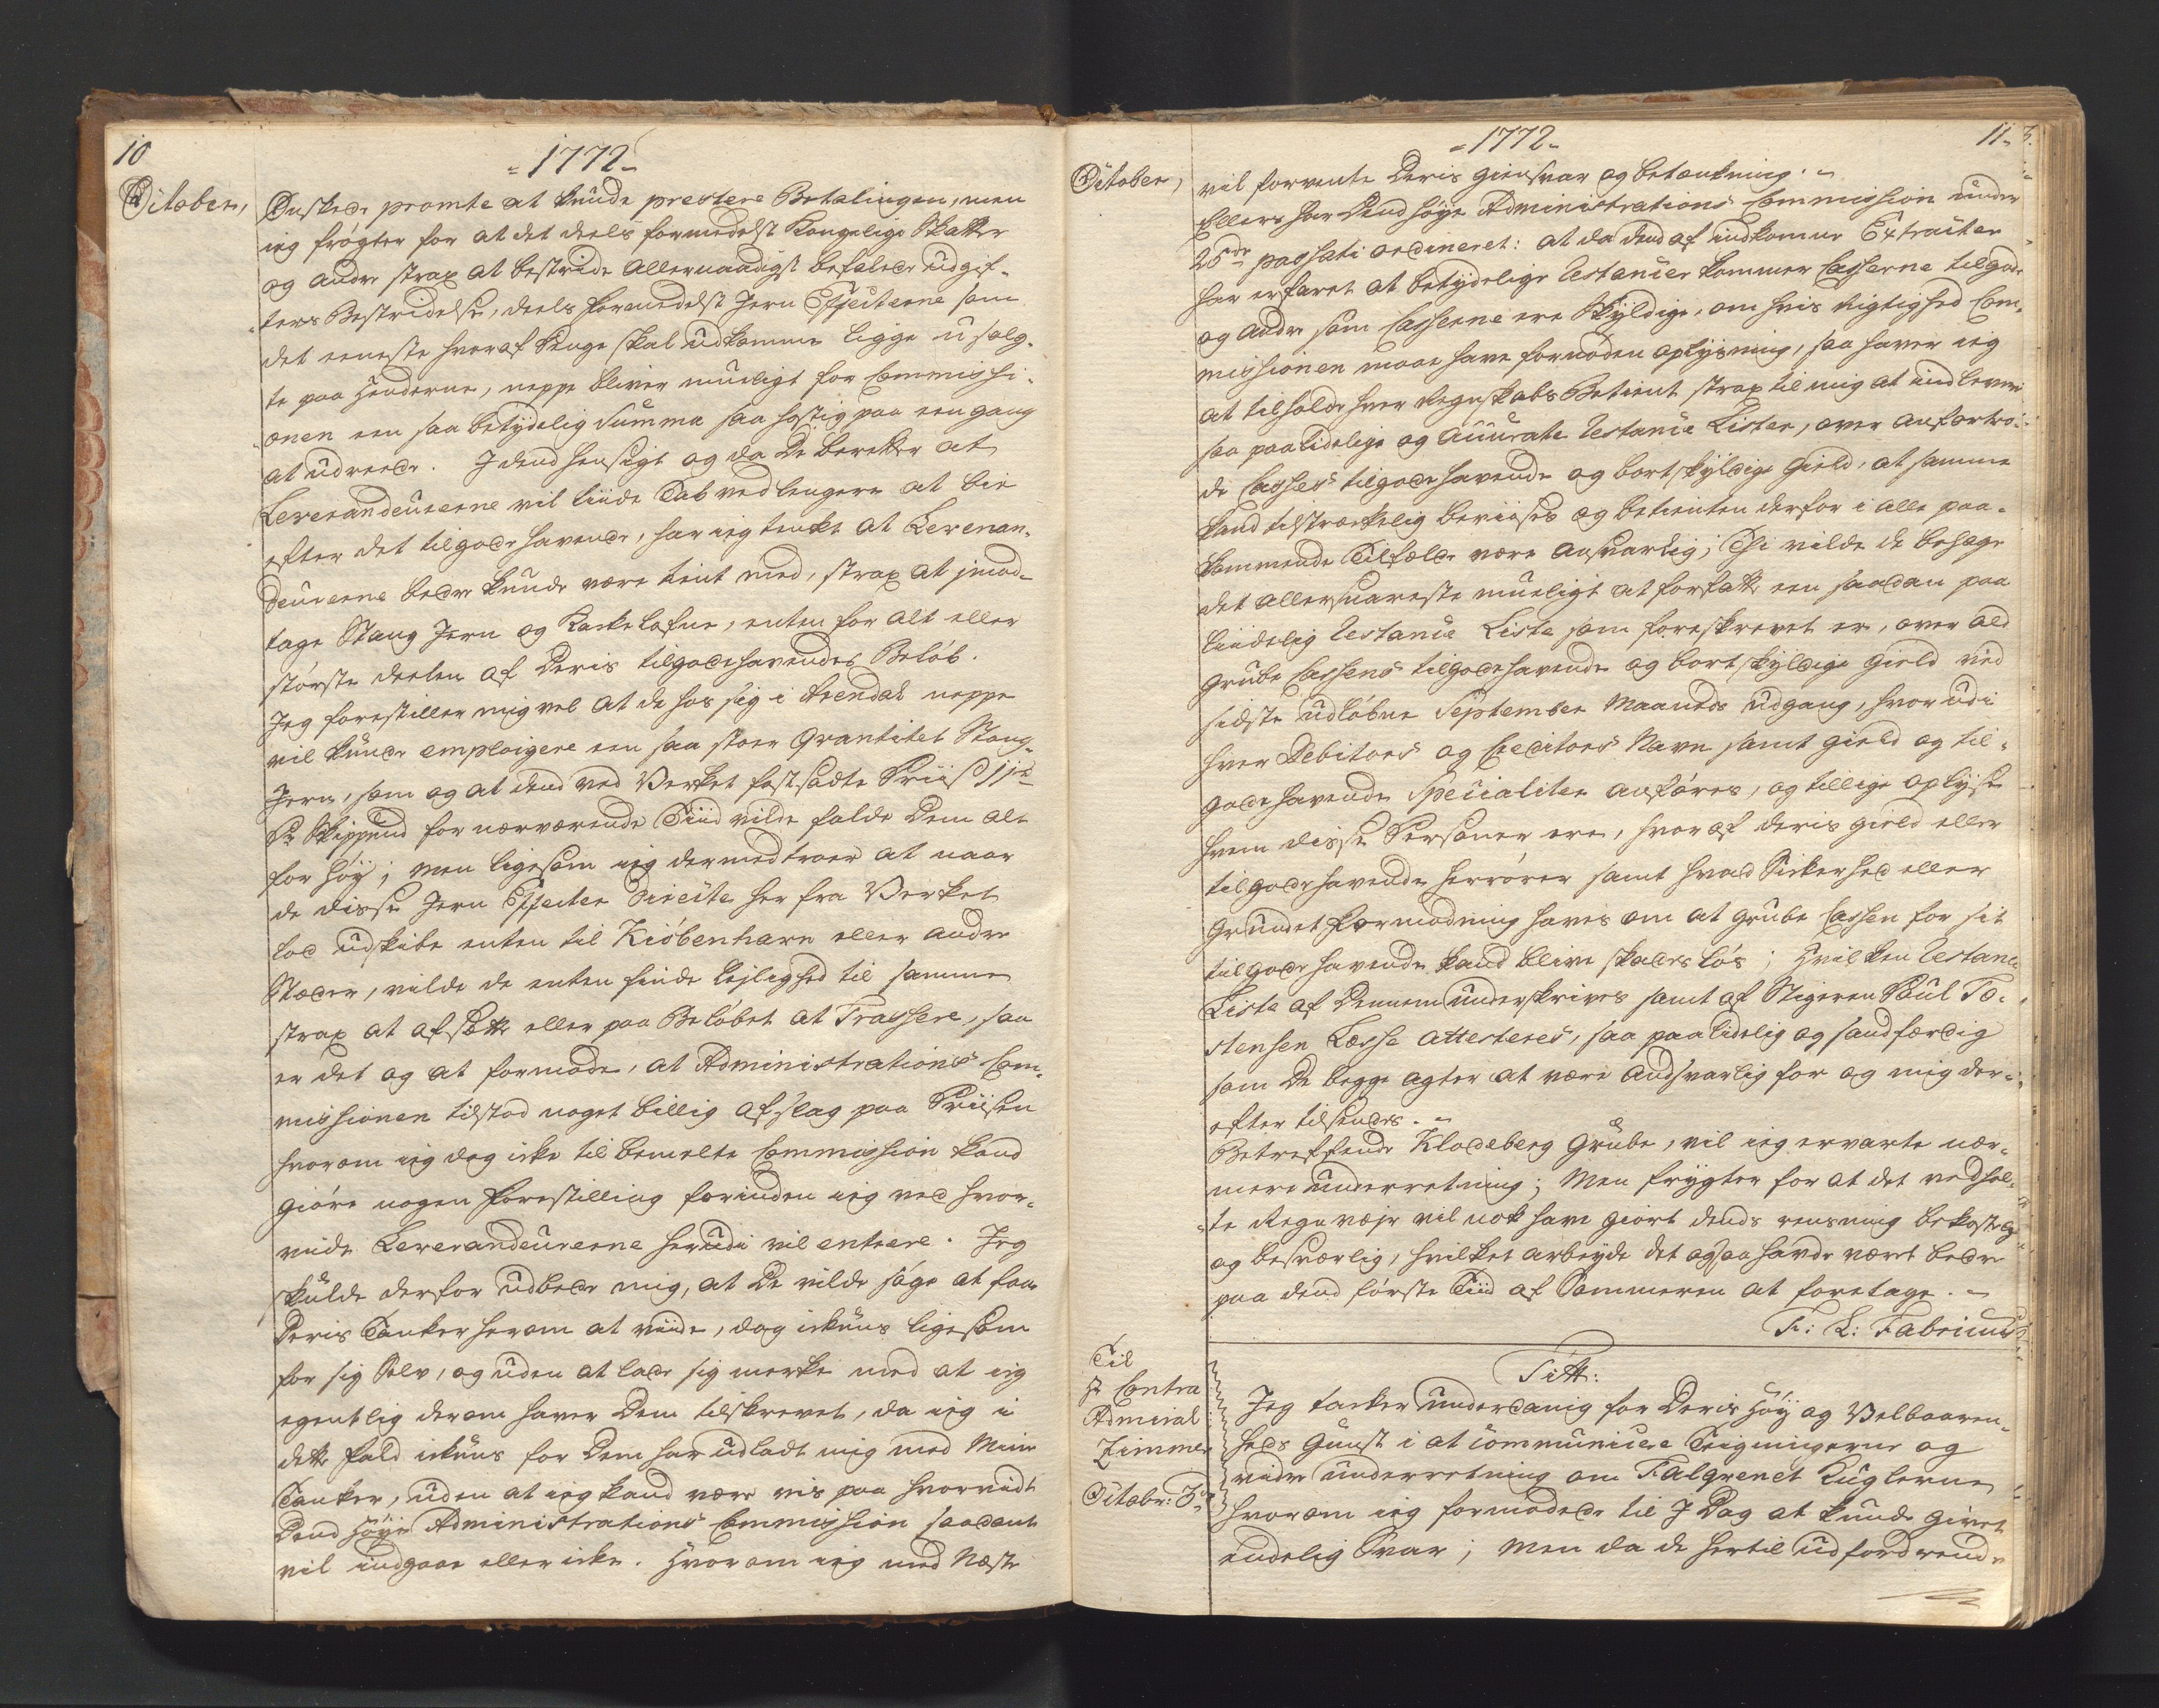 10
= 1772 =
October,
Ønskede promte at kunde prestere Betalingen, men
ieg frögter for at det deels formedelst Kongelige Skatter
og andre strax at bestride allernaadigst befalede Udgif-
ters Bestridelse, deels formedelst Jern Effecterne som
det eeneste hvoraf Penge skal udkomme ligge u-solg-
te paa Hænderne, neppe bliver mueligt for Commissi-
onen een saa betydelig Summa saa hastig paa een gang
at udreede. I dend hensigt og da De beretter at
Leverandeurerne vil liide Tab ved lengere at bie
efter det tilgode havende, har ieg tenkt at Leveran-
deurerne bedre kunde være tient med, strax at imod-
tage Stang Jern og Kackelofne, enten for alt eller
störste deelen af Deris tilgodehavendes Belöb.
Jeg forestiller mig vel at de hos sig i Arendal neppe
vil kunde emploigere een saa stoer Qvantitet Stang-
Jern, som og at dend ved Verket fastsadte Priis
Pr Skippund for nærværende Tiid vilde falde Dem alt
for høy; men ligesom ieg dermed troer at naar
de disse Jern Effecter directe her fra Verket
lod udskibe enten til Kiöbenhavn eller andre
Stæder, vilde de enten finde lejlighed til samme
strax at afsætte eller paa Belöbet at Trassere, saa
er det og at formode, at Administrations Com-
missionen tilstod noget billig afslag paa Priisen
hvorom ieg dog icke til bemelte Commission kand
giöre nogen forestilling forinden ieg ved hvor-
vide Leverandeurerne herudi vil entrere. Jeg
skulde derfor udbede mig, at De vilde söge at faae
Deris Tanker herom at viide, dog ickuns ligesom
for sig Selv, og uden at lade sig merke med at ieg
egentlig derom haver Dem tilskrevet, da ieg i
dette fald ickuns for Dem har udladt mig med Mine
Tanker, uden at ieg kand være vis paa hvorvidt
Dend Høye Administrations Commission saadant
vil indgaae eller icke. Hvorom ieg med Næste
= 1772 =
11
October,
vil forvente Deris giensvar og betænkning. =
Ellers har Dend høye Administrations Commission under
25de passati ordineret: at da dend af indkomne Extracter
har erfaret at betydelige Restancer kommer Casserne tilgode
og andre som Casserne ere skyldige, om hvis rigtighed Com-
missionen maae have fornøden oplysning, saa haver ieg
at tilholde hver Regnskabs Betient strax til mig at indlevere
saa paalidelige og accurate Restance Lister, over anfortro-
de Casses tilgodehavende og bortskyldige Gield, at samme
kand tilstrækkelig beviises og betienten derfor i alle paa-
kommende Tilfælde være ansvarlig; Thi vilde de behage
det allersnareste mueligt at forfatte een saadan paa
liidelig Restance Liste som foreskrevet er, over ald
Grube Cassens tilgodehavende og bortskyldige Gield ved
sidste udløbne September Maaneds Udgang, hvorudi
hver Debitors og Creditors Navn samt gield og til-
gode havende Specialiter anföres, og tillige oplyse
hvem disse Personer ere, hvoraf deris gield eller
tilgodehavende herrörer samt hvad Sickerhed eller
Grundet Formodning haves om at Grube Cassen for sit
tilgodehavende kand blive skadesløs; Hvilken Restance
Liste af Dennem underskrives samt af Stigeren Poul To-
stensen Læsse attesteres, saa paalidelig og sandfærdig
som De begge agter at være andsvarlig for og mig der-
efter tilsendes. =
Betreffende Klodeberg Grube, vil ieg ervarte nær-
mere underretning; Men frygter for at det vedhol-
te Regnvejr vil nok have giort dends rensning bekostelig
og besværlig, hvilket arbeyde det ogsaa havde været bedre
paa dend förste Tiid af Sommeren at foretage. =
F: L: Fabricius
Til
Hr Contra
Admiral
Zimmer
Octobr: 3de
Titt:
Jeg tacker underdanig for Deris Høy og Velbaaren-
heds Gunst i at communicere Teigningerne og
videre underretning om Falqvenet Kuglerne
hvorom ieg formodede til I Dag at kunde givet
endelig Svar; men da de hertil udfordrende